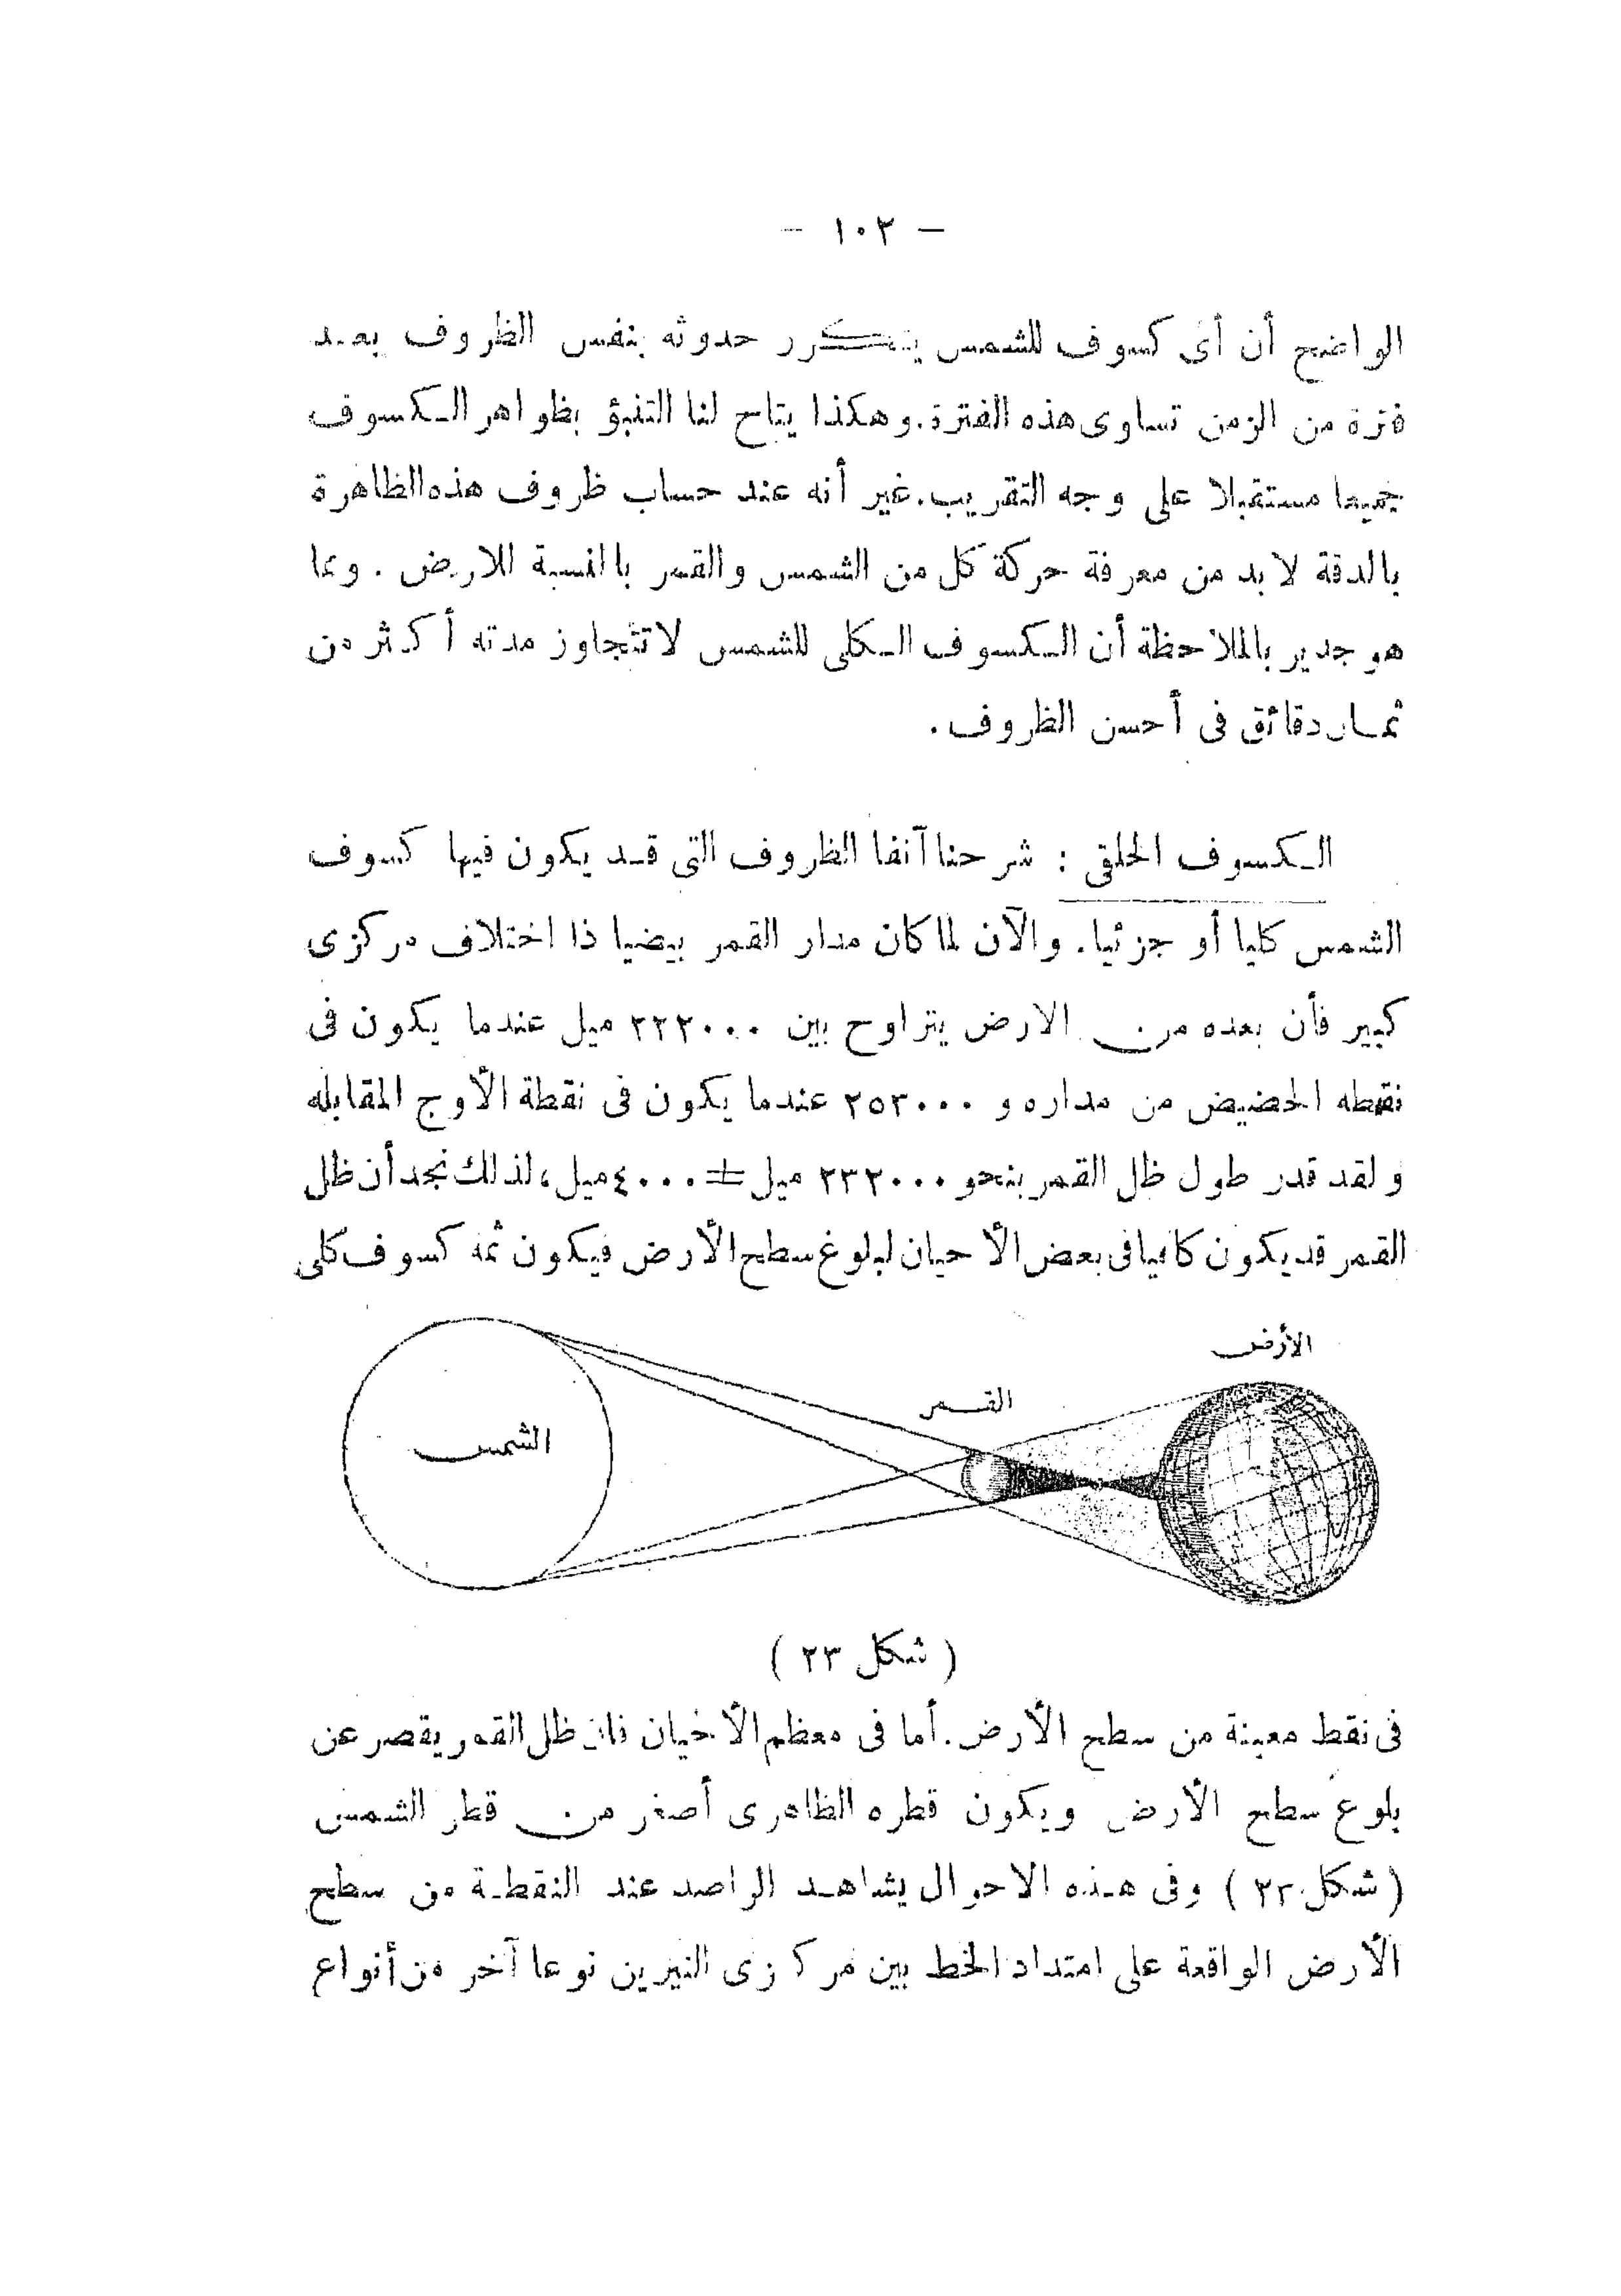 — ١٠٣ —
الواضح أن أى كسوف للشمس يتكرر حدوثه بنفس الظروف بعد
فترة من الزمن تساوى هذه الفترة. وهكذا يتاح لنا التنبؤ بظواهر الكسوف
جميعا مستقبلا على وجه التقريب. غير أنه عند حساب ظروف هذه الظاهرة
بالدقة لا بد من معرفة حركة كل من الشمس والقمر بالنسبة للارض . ومما
هو جدير بالملاحظة أن الكسوف الكلى للشمس لا تتجاوز مدته أكثر من
ثمان دقائق فى أحسن الظروف .
الكسوف الحلقى : شرحنا آنفا الظروف التى قد يكون فيها كسوف
الشمس كليا أو جزئيا. والآن لما كان مدار القمر بيضيا ذا اختلاف مركزى
كبير فأن بعده من الارض يتراوح بين ٢٢٢٠٠٠ ميل عندما يكون فى
نقطه الحضيض من مداره و ٢٥٣٠٠٠ عندما يكون فى نقطة الأوج المقابله
ولقد قدر طول ظل القمر بنحو ٢٣٢٠٠٠ ميل ± ٤٠٠٠ ميل، لذلك نجد أن ظل
القمر قد يكون كافيا فى بعض الأحيان لبلوغ سطح الأرض فيكون ثمه كسوف كلى
الأرض
القمر
الشمس
( شكل ٢٣ )
فى نقط معينة من سطح الأرض. أما فى معظم الأحيان فان ظل القمر يقصر عن
بلوغ سطح الأرض ويكون قطره الظاهرى أصغر من قطر الشمس
( شكل ٢٣ ) وفى هذه الاحوال يشاهد الراصد عند النقطة من سطح
الأرض الواقعة على امتداد الخط بين مركزى النيرين نوعا آخر من أنواع